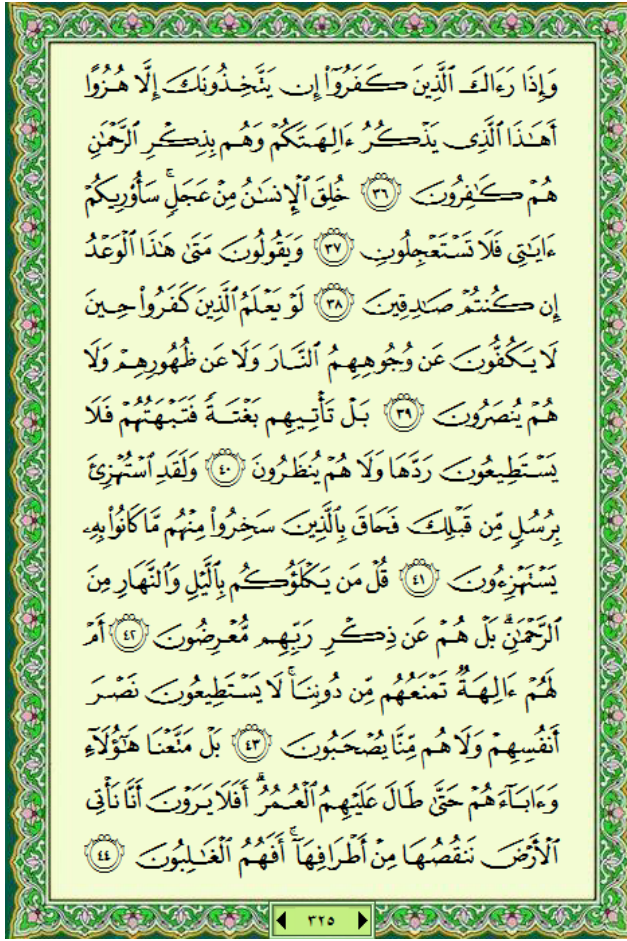 وَإِذَا رَءَاكَ ٱلَّذِينَ كَفَرُوٓا۟ إِن يَتَّخِذُونَكَ إِلَّا هُزُوًا
أَهَـٰذَا ٱلَّذِى يَذْكُرُ ءَالِهَتَكُمْ وَهُم بِذِكْرِ ٱلرَّحْمَـٰنِ
هُمْ كَـٰفِرُونَ ﴿٣٦﴾ خُلِقَ ٱلْإِنسَـٰنُ مِنْ عَجَلٍۢ ۚ سَأُو۟رِيكُمْ
ءَايَـٰتِى فَلَا تَسْتَعْجِلُونِ ﴿٣٧﴾ وَيَقُولُونَ مَتَىٰ هَـٰذَا ٱلْوَعْدُ
إِن كُنتُمْ صَـٰدِقِينَ ﴿٣٨﴾ لَوْ يَعْلَمُ ٱلَّذِينَ كَفَرُوا۟ حِينَ
لَا يَكُفُّونَ عَن وُجُوهِهِمُ ٱلنَّارَ وَلَا عَن ظُهُورِهِمْ وَلَا
هُمْ يُنصَرُونَ ﴿٣٩﴾ بَلْ تَأْتِيهِم بَغْتَةًۭ فَتَبْهَتُهُمْ فَلَا
يَسْتَطِيعُونَ رَدَّهَا وَلَا هُمْ يُنظَرُونَ ﴿٤٠﴾ وَلَقَدِ ٱسْتُهْزِئَ
بِرُسُلٍۢ مِّن قَبْلِكَ فَحَاقَ بِٱلَّذِينَ سَخِرُوا۟ مِنْهُم مَّا كَانُوا۟ بِهِۦ
يَسْتَهْزِءُونَ ﴿٤١﴾ قُلْ مَن يَكْلَؤُكُم بِٱلَّيْلِ وَٱلنَّهَارِ مِنَ
ٱلرَّحْمَـٰنِ ۗ بَلْ هُمْ عَن ذِكْرِ رَبِّهِم مُّعْرِضُونَ ﴿٤٢﴾ أَمْ
لَهُمْ ءَالِهَةٌۭ تَمْنَعُهُم مِّن دُونِنَا ۚ لَا يَسْتَطِيعُونَ نَصْرَ
أَنفُسِهِمْ وَلَا هُم مِّنَّا يُصْحَبُونَ ﴿٤٣﴾ بَلْ مَتَّعْنَا هَـٰٓؤُلَآءِ
وَءَابَآءَهُمْ حَتَّىٰ طَالَ عَلَيْهِمُ ٱلْعُمُرُ ۗ أَفَلَا يَرَوْنَ أَنَّا نَأْتِى
ٱلْأَرْضَ نَنقُصُهَا مِنْ أَطْرَافِهَآ ۚ أَفَهُمُ ٱلْغَـٰلِبُونَ ﴿٤٤﴾
٣٢٥